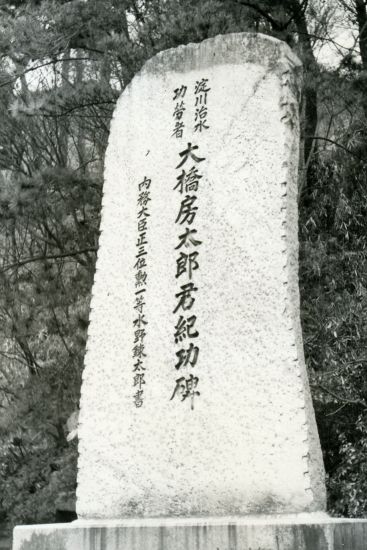 淀川治水
功労者
大橋房太郎君紀功碑
内務大臣正三位勲一等水野錬太郎書